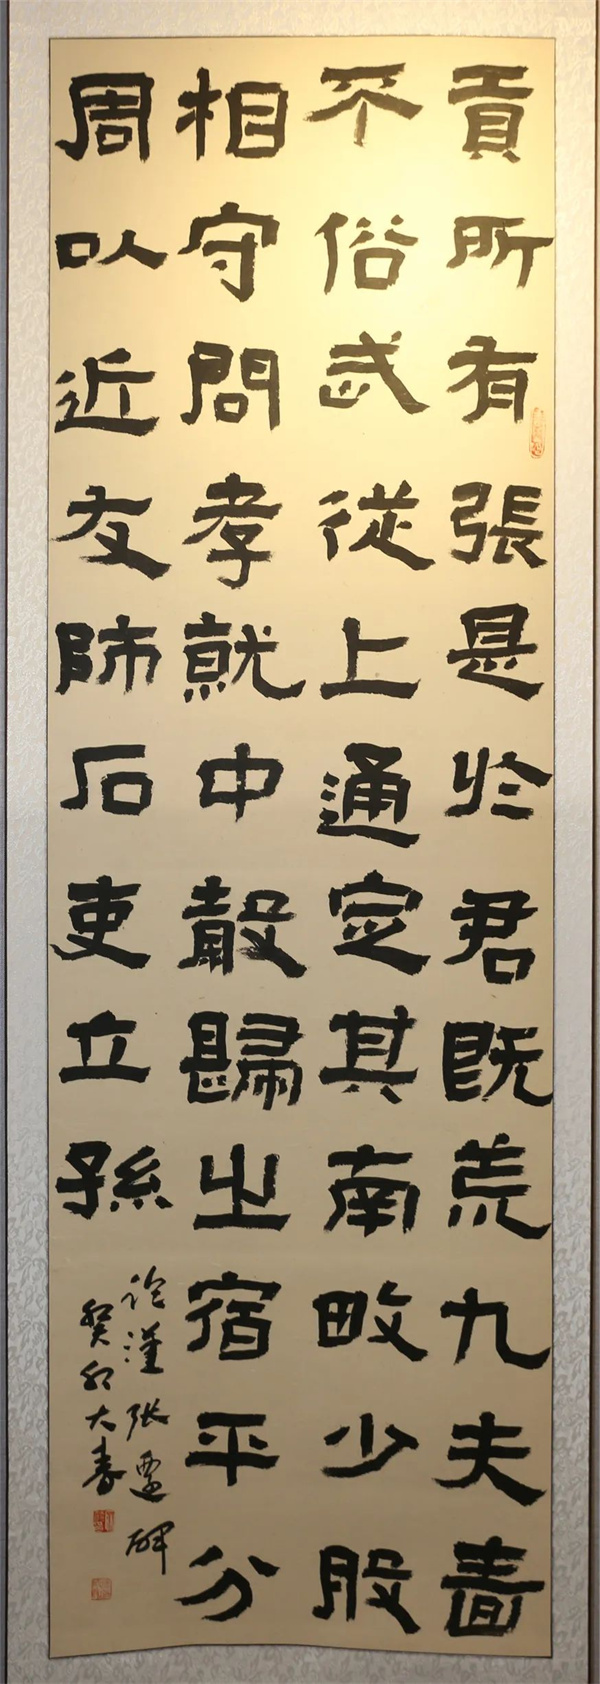 貢所有張是於君既荒九夫嗇
不俗武從上通定其南畝少股
相守問孝就中歸之宿平分
周以近友師石吏立孫
漢张遷碑
癸卯大春